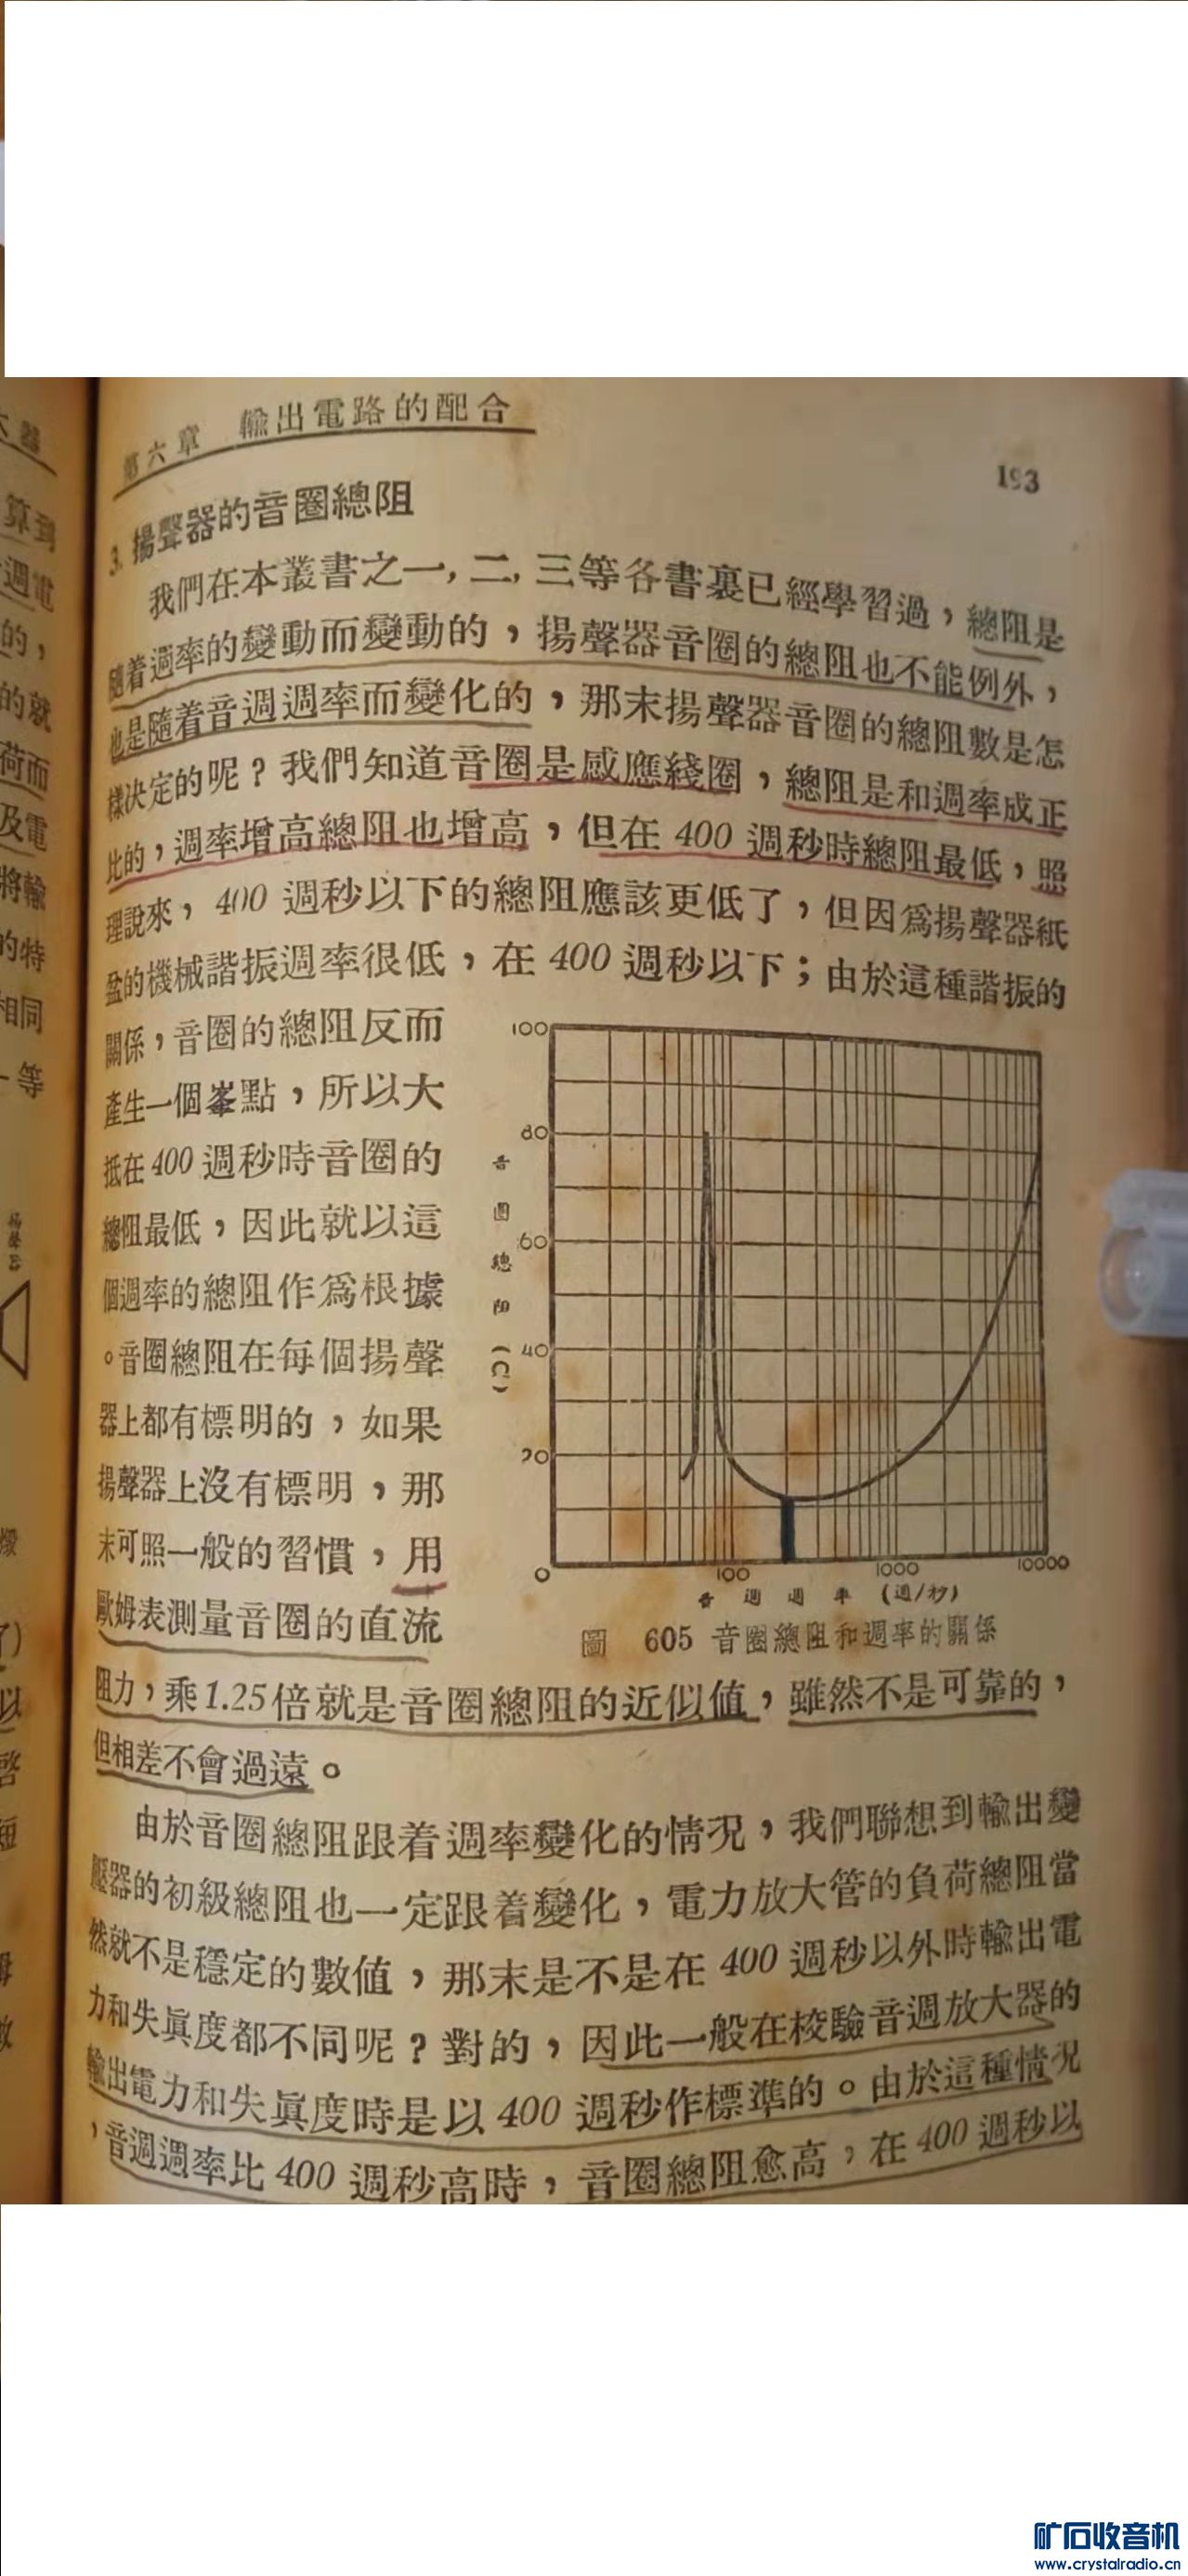 第六章 輸出電路的配合
193
3. 揚聲器的音圈總阻
我們在本叢書之一, 二, 三等各書裏已經學習過，總阻是
隨着週率的變動而變動的，揚聲器音圈的總阻也不能例外，
也是隨着音週週率而變化的，那末揚聲器音圈的總阻數是怎
樣决定的呢？我們知道音圈是感應綫圈，總阻是和週率成正
比的，週率增高總阻也增高，但在 400 週秒時總阻最低，照
理說來，400 週秒以下的總阻應該更低了，但因爲揚聲器紙
盆的機械諧振週率很低，在 400 週秒以下；由於這種諧振的
關係，音圈的總阻反而
產生一個峯點，所以大
抵在 400 週秒時音圈的
總阻最低，因此就以這
個週率的總阻作爲根據
。音圈總阻在每個揚聲
器上都有標明的，如果
揚聲器上沒有標明，那
末可照一般的習慣，用
歐姆表測量音圈的直流
100
80
60
40
20
0
音圈總阻(Ω)
100
1000
10000
音週週率 (週/秒)
圖 605 音圈總阻和週率的關係
阻力，乘1.25倍就是音圈總阻的近似值，雖然不是可靠的，
但相差不會過遠。
由於音圈總阻跟着週率變化的情況，我們聯想到輸出變
壓器的初級總阻也一定跟着變化，電力放大管的負荷總阻當
然就不是穩定的數値，那末是不是在 400 週秒以外時輸出電
力和失眞度都不同呢？對的，因此一般在校驗音週放大器的
輸出電力和失眞度時是以 400 週秒作標準的。由於這種情況
，音週週率比 400 週秒高時，音圈總阻愈高，在 400 週秒以
算到
週電
的，
的就
荷而
及電
將輸
的特
相同
一等
揚聲器
矿石收音机
www.crystalradio.cn